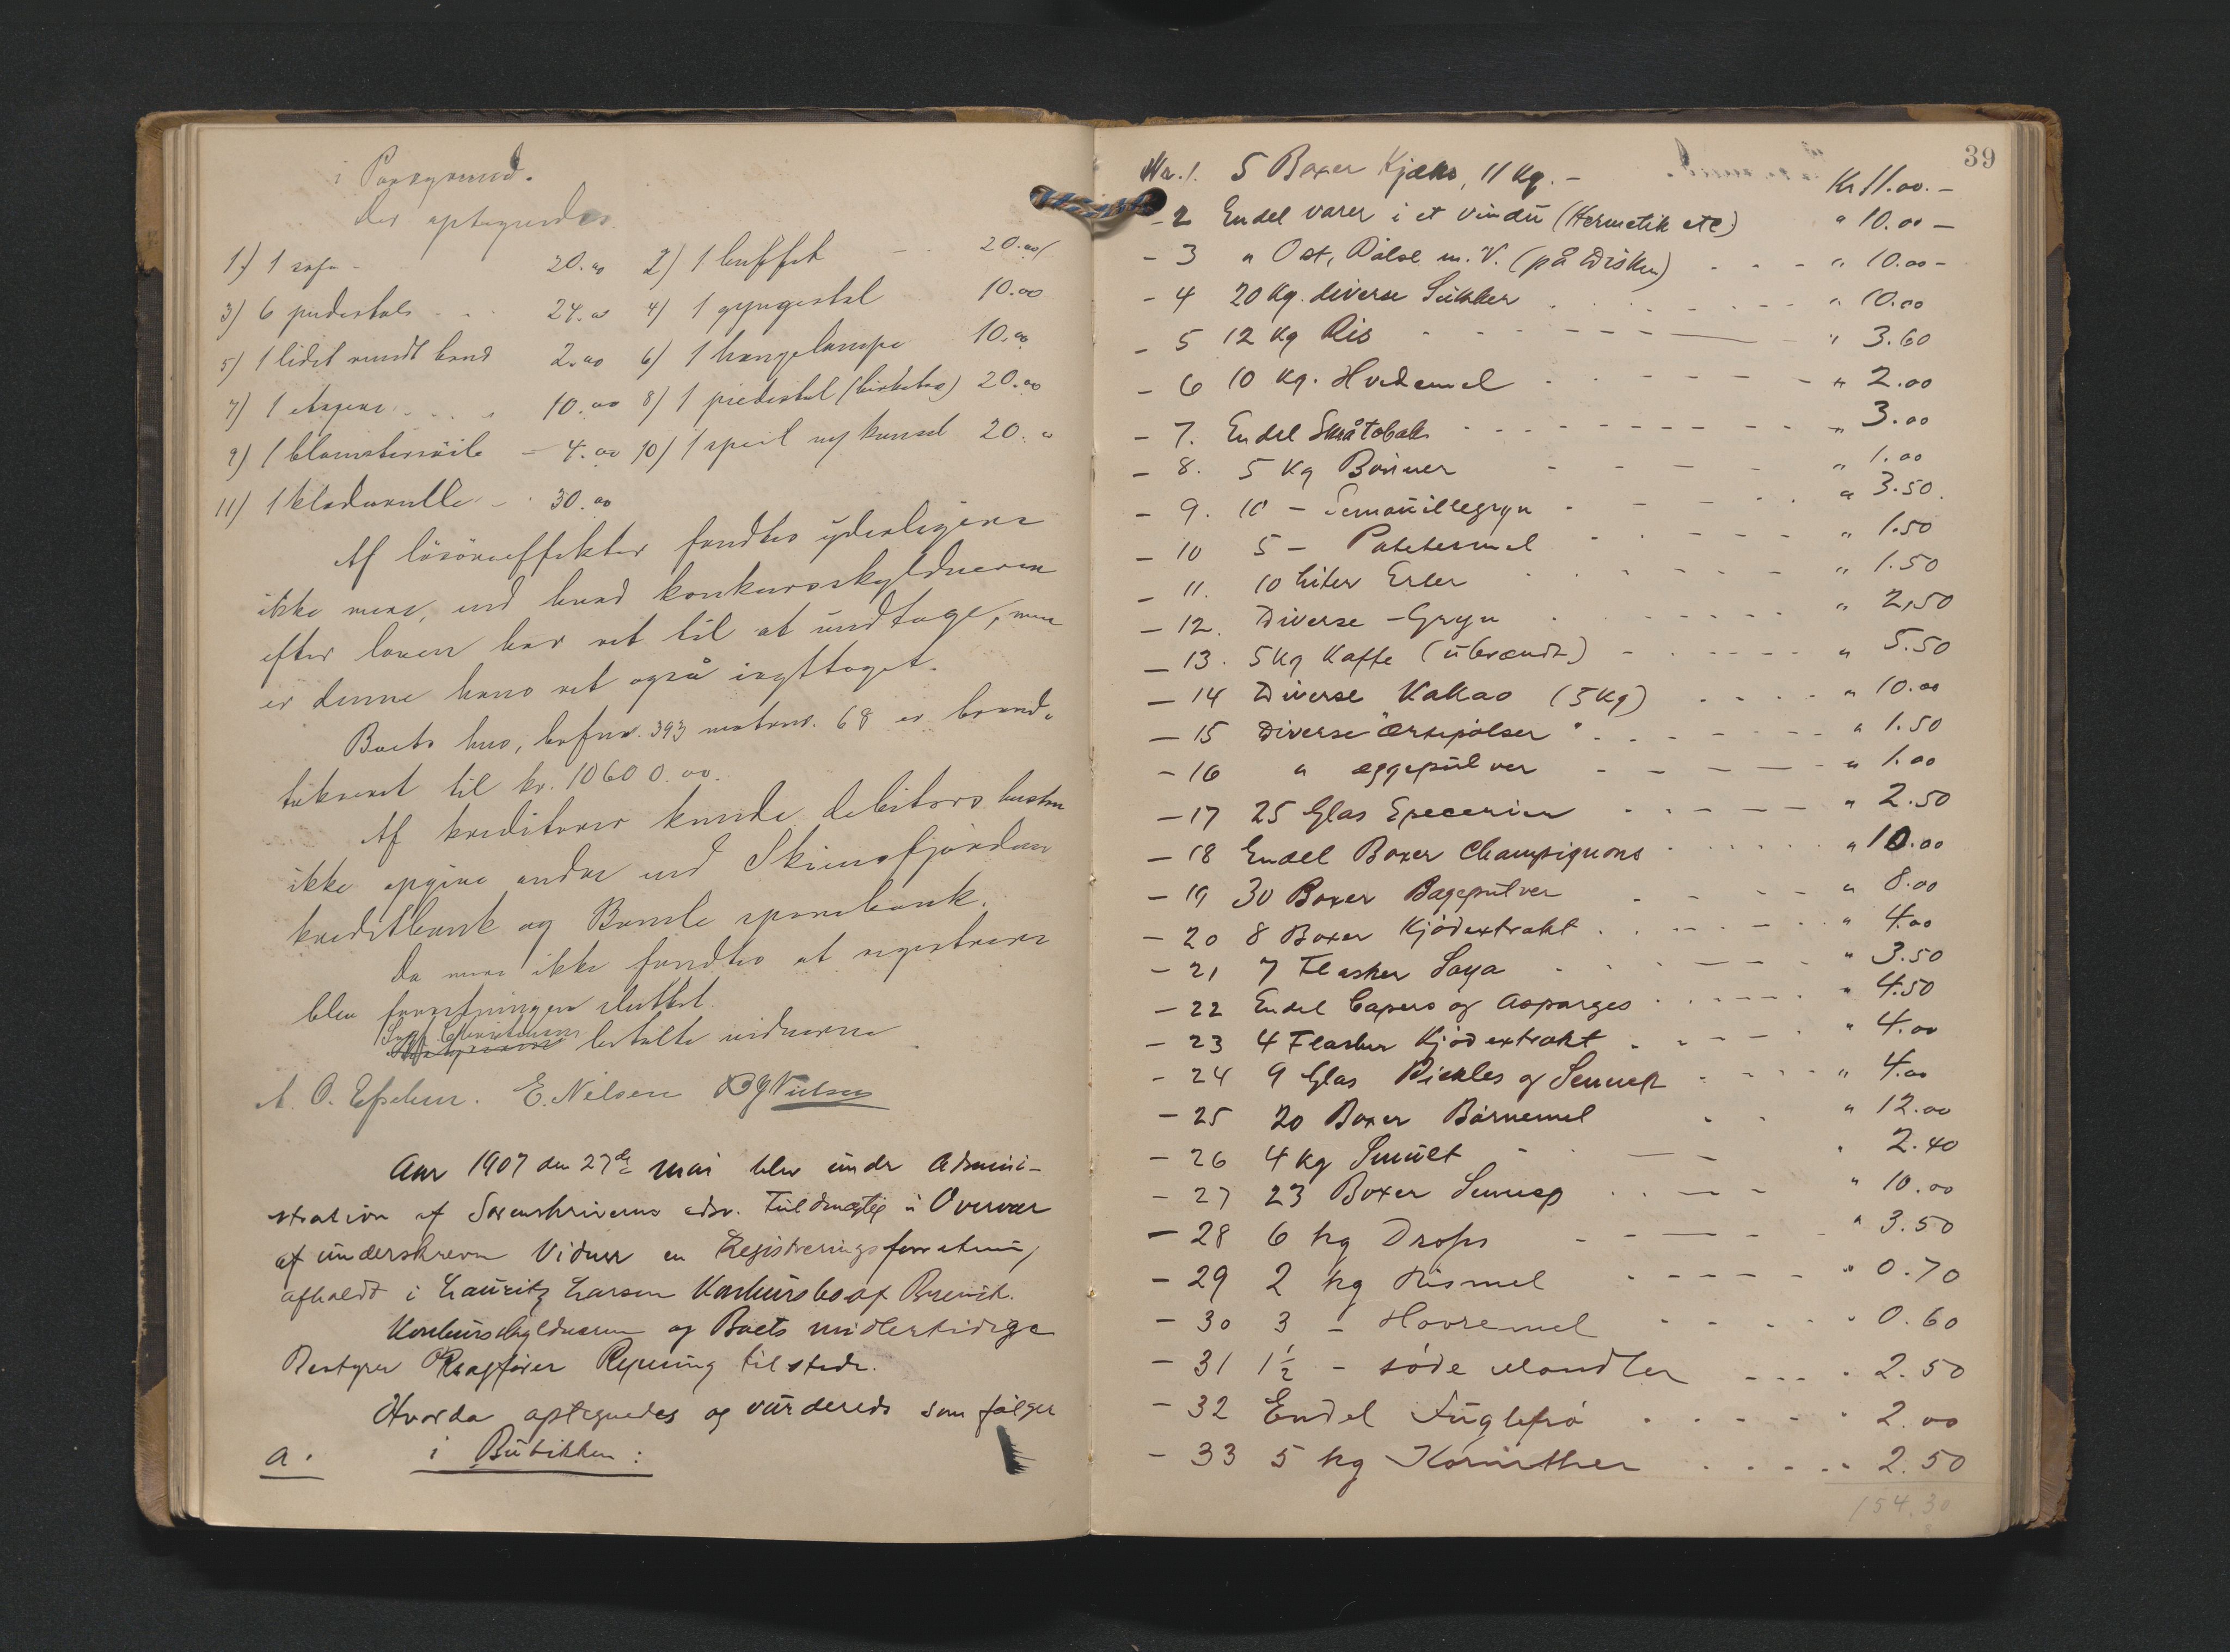 i Porsgrund.
Der optegnedes
1) 1 sofa - 20.00 2) 1 buffet - 20.00
3) 6 pudestole - - 24.00 4) 1 gyngestol 10.00
5) 1 lidet rundt bord 2.00 6) 1 hængelampe 10.00
7) 1 etagere . . . . 10.00 8) 1 piedestal (birketræ) 20.00
9) 1 blomstersöile - 4.00 10) 1 speil m/ konsol 20.00
11) 1 klæderulle - 30.00
Af lösöreeffekter fandtes yderligere
ikke mere, end hvad konkursskyldneren
efter loven har ret til at undtage, men
er denne hans ret også iagttaget.
Boets hus, brfnr. 393 matrnr. 68 er brand-
takseret til kr. 10600.00.
Af kreditorer kunde debitors hustru
ikke opgive andre end Skiensfjordens
kreditbank og Bamle sparebank.
Da mere ikke fandtes at registrere
blev forretningen sluttet.
bestilte vidnerne
E. Nilsen
Aar 1907 den 27de mai blev under Admini-
stration af Sorenskriverens edsv. Fuldmægtig i Overvær
af underskrevne Vidner en Registreringsforretning,
afholdt i Lauritz Larsen Konkursbo af Brevik.
Konkursskyldneren og Boets midlertidige
Bestyrer Sagfører Ryning tilstede.
Hvorda optegnedes og vurderedes som følger
a. i Butikken:
39
Nr. 1. 5 Boxer Kjæks, 11 Kg. - Kr 11.00.-
- 2 Endel varer i et vindu (Hermetik etc) " 10.00 -
- 3 " Ost, Pølse m. V. (på Disken) . - - " 10.00 -
- 4 20 Kg. diverse Sukker . . . . - - - " 10.00
- 5 12 Kg Ris - - - - - - " 3.60
- 6 10 Kg. Hvedemel . - - - - - " 2.00
- 7. Endel Skråtobak - - - - - - - " 3.00
- 8. 5 Kg Bønner - - - - " 1.00
- 9. 10 - Semouillegryn - - - - . " 3.50.
- 10 5 - Potetesmel - - - - - " 1.50
- 11. 10 Liter Erter - - - - - " 1.50
- 12. Diverse - Gryn . - - - - . " 2,50
- 13. 5 Kg Kaffe (ubrændt) - - - - - " 5.50
- 14 Diverse Kakao (5 Kg) . . . . " 10.00
- 15 Diverse "Ærtepølser" . . - - - - " 1.50
- 16 " eggepulver - - - - " 1.00
- 17 25 Glas Specerier - - - - - " 2.50
- 18 Endel Boxer Champignons . . . . . . " 10.00
- 19 30 Boxer Bagepulver - - - - " 8.00
- 20 8 Boxer Kjødextrakt . . - - - . " 4.00
- 21 7 Flasker Soya - - - - - " 3.50
- 22 Endel Capers og Asparges . - - - . " 4.50
- 23 4 Flasker Kjødextrakt . - - - . " 4.00
- 24 9 Glas Pickles og Sennep - - - - " 4.00
- 25 20 Boxer Børnemel . . " 12.00
- 26 4 kg Smult - - - . 2.40
- 27 23 Boxer Sennep . . - - " 10.00
- 28 6 kg Drops - - - - " 3.50
- 29 2 kg Rismel - - - - - " 0.70
- 30 3 - Havremel - - - . . " 0.60
- 31 1½ - søde Mandler - - - . 2.50
- 32 Endel Fuglefrø . . - - " 2.00
- 33 5 kg Korinther . . . . . 2.50
154.30